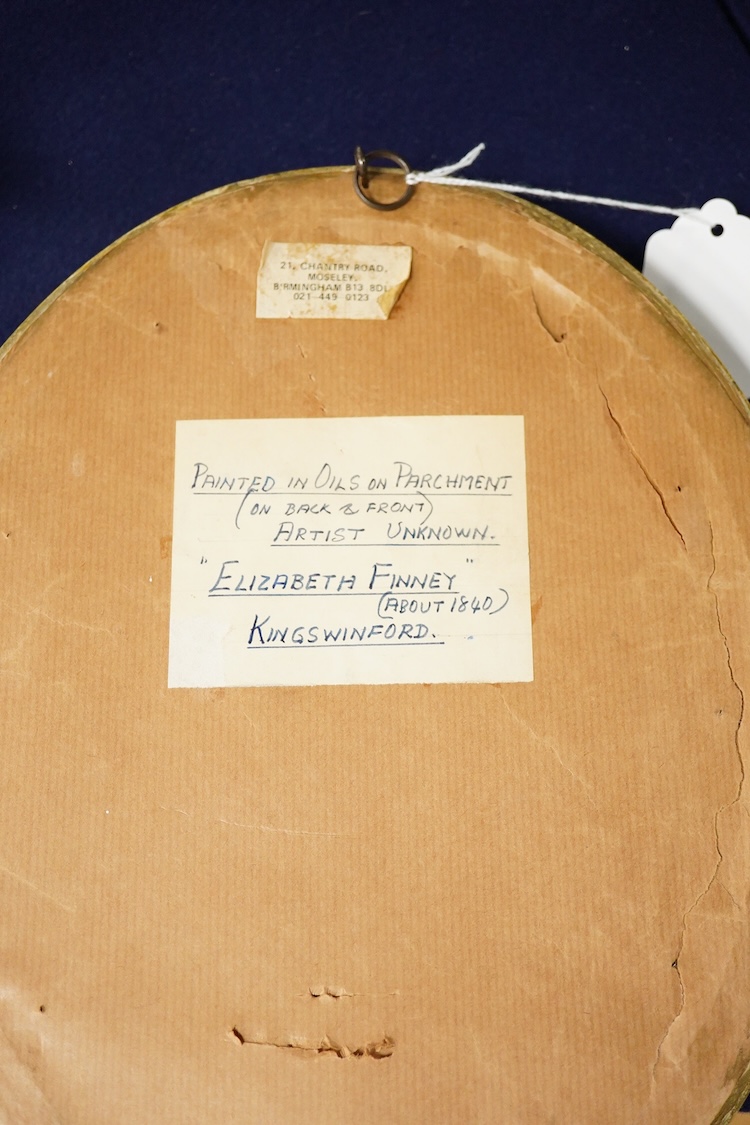 21, CHANTRY ROAD,
MOSELEY,
BIRMINGHAM B13 8DL
021-449 0123
PAINTED IN OILS ON PARCHMENT
(ON BACK & FRONT)
ARTIST UNKNOWN.
"ELIZABETH FINNEY"
(ABOUT 1840)
KINGSWINFORD.